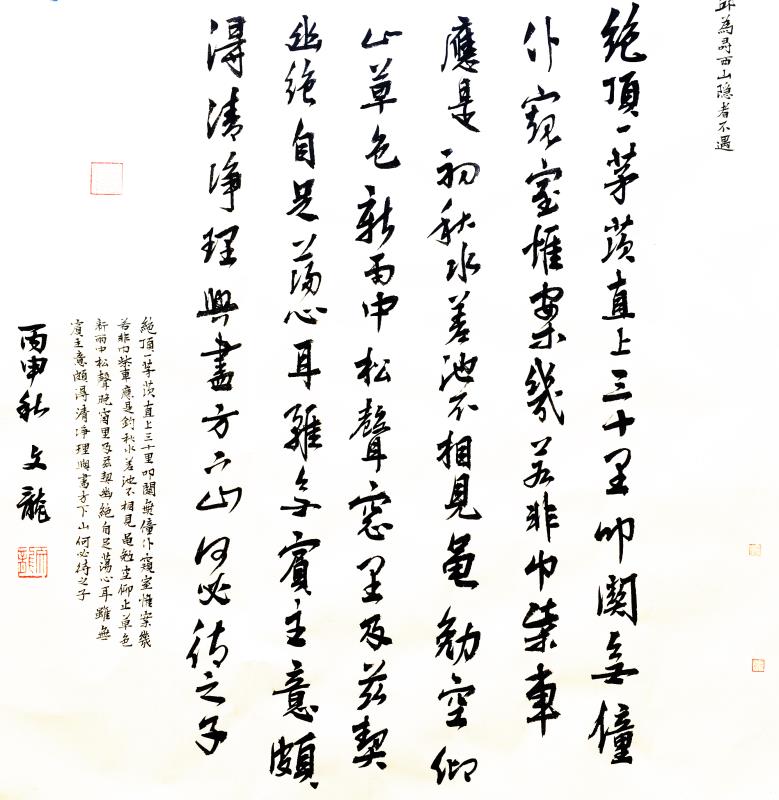 邱為尋西山隐者不遇
絶頂一茅茨直上三十里叩関無僮
仆窺室惟案幾若非巾柴車
應是初秋水差池不相見黽勉空仰
止草色新雨中松聲窓里及兹契
幽絶自足蕩心耳雖無賓主意頗
得清净理興盡方下山何必待之子
絶頂一茅茨直上三十里叩關無僮仆窺室惟案幾
若非巾柴車應是釣秋水差池不相見黽勉空仰止草色
新雨中松聲晚窗里及兹契幽絶自足蕩心耳雖無
賓主意頗得清净理興盡方下山何必待之子
丙申秋 文龍